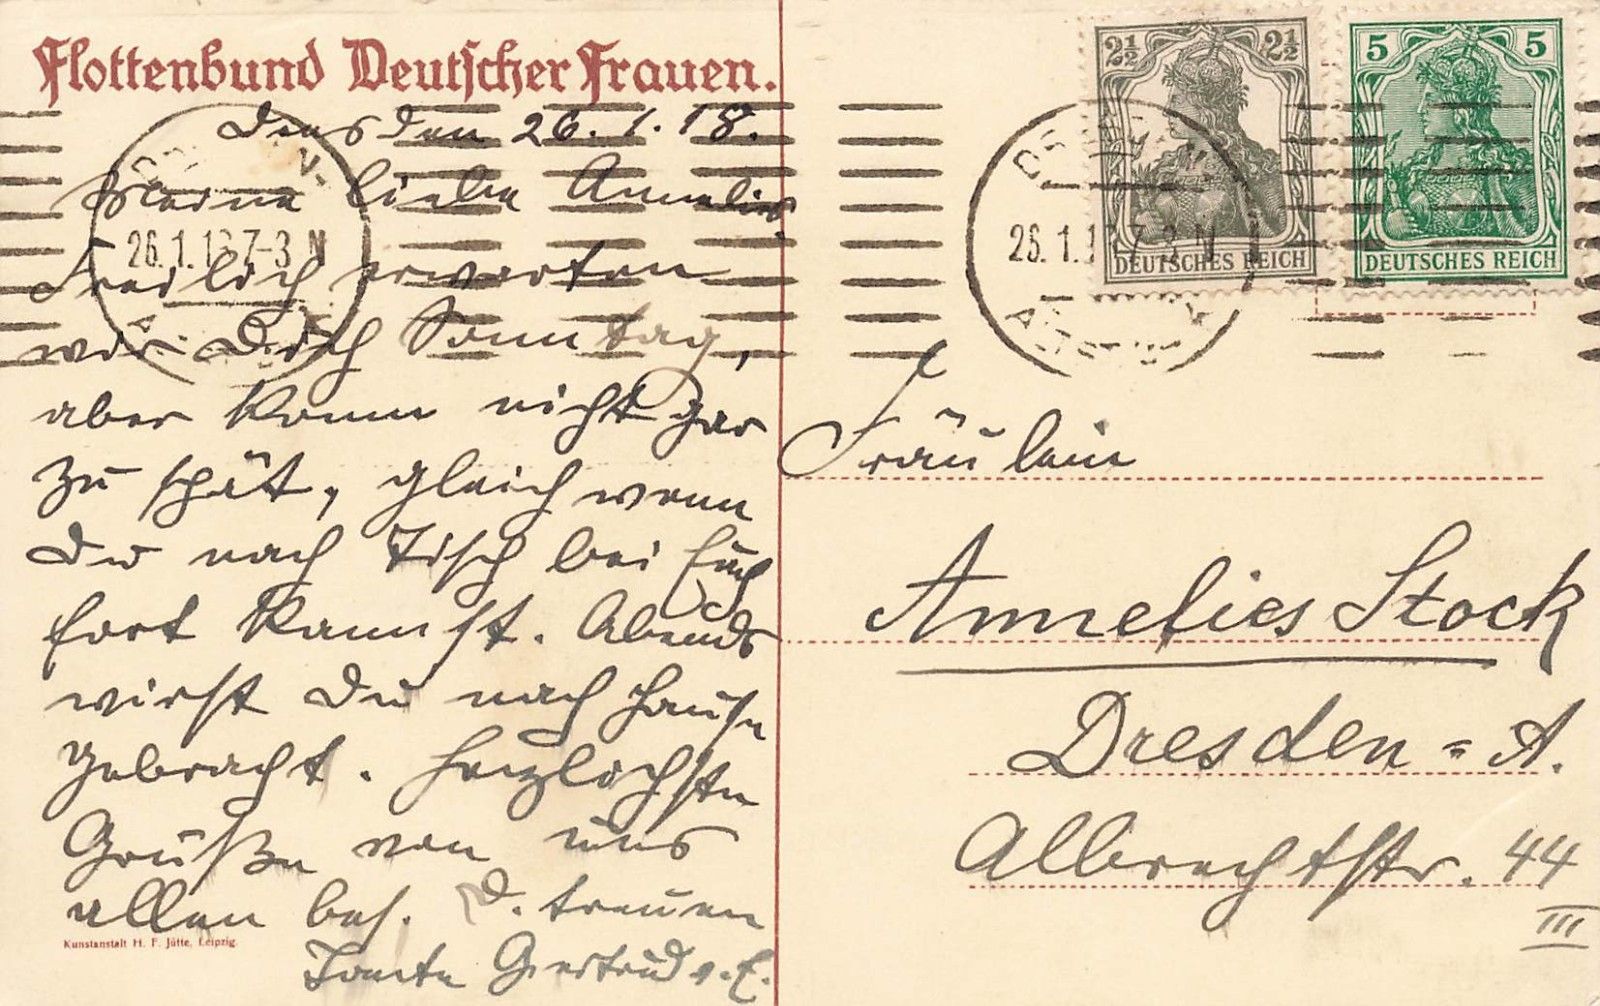 Flottenbund Deutscher Frauen.
Dresden 26. 1. 18.
Meine liebe Annelies
Freilich erwarten
wir Dich Sonntag,
aber komm nicht gar
zu spät, gleich wenn
Du nach Tisch bei Euch
fort kannst. Abends
wirst Du nach Hause
gebracht. Herzlichste
Grüße von uns
allen bes. D. treuen
Tante Gertrud v. E.
Kunstanstalt H. F. Jütte, Leipzig.
26.1.18 7-8 N
2½ 2½
DEUTSCHES REICH
5 5
DEUTSCHES REICH
26.1.1 7-8 N
Fräulein
Annelies Stock
Dresden = A.
Albrechtstr. 44
III